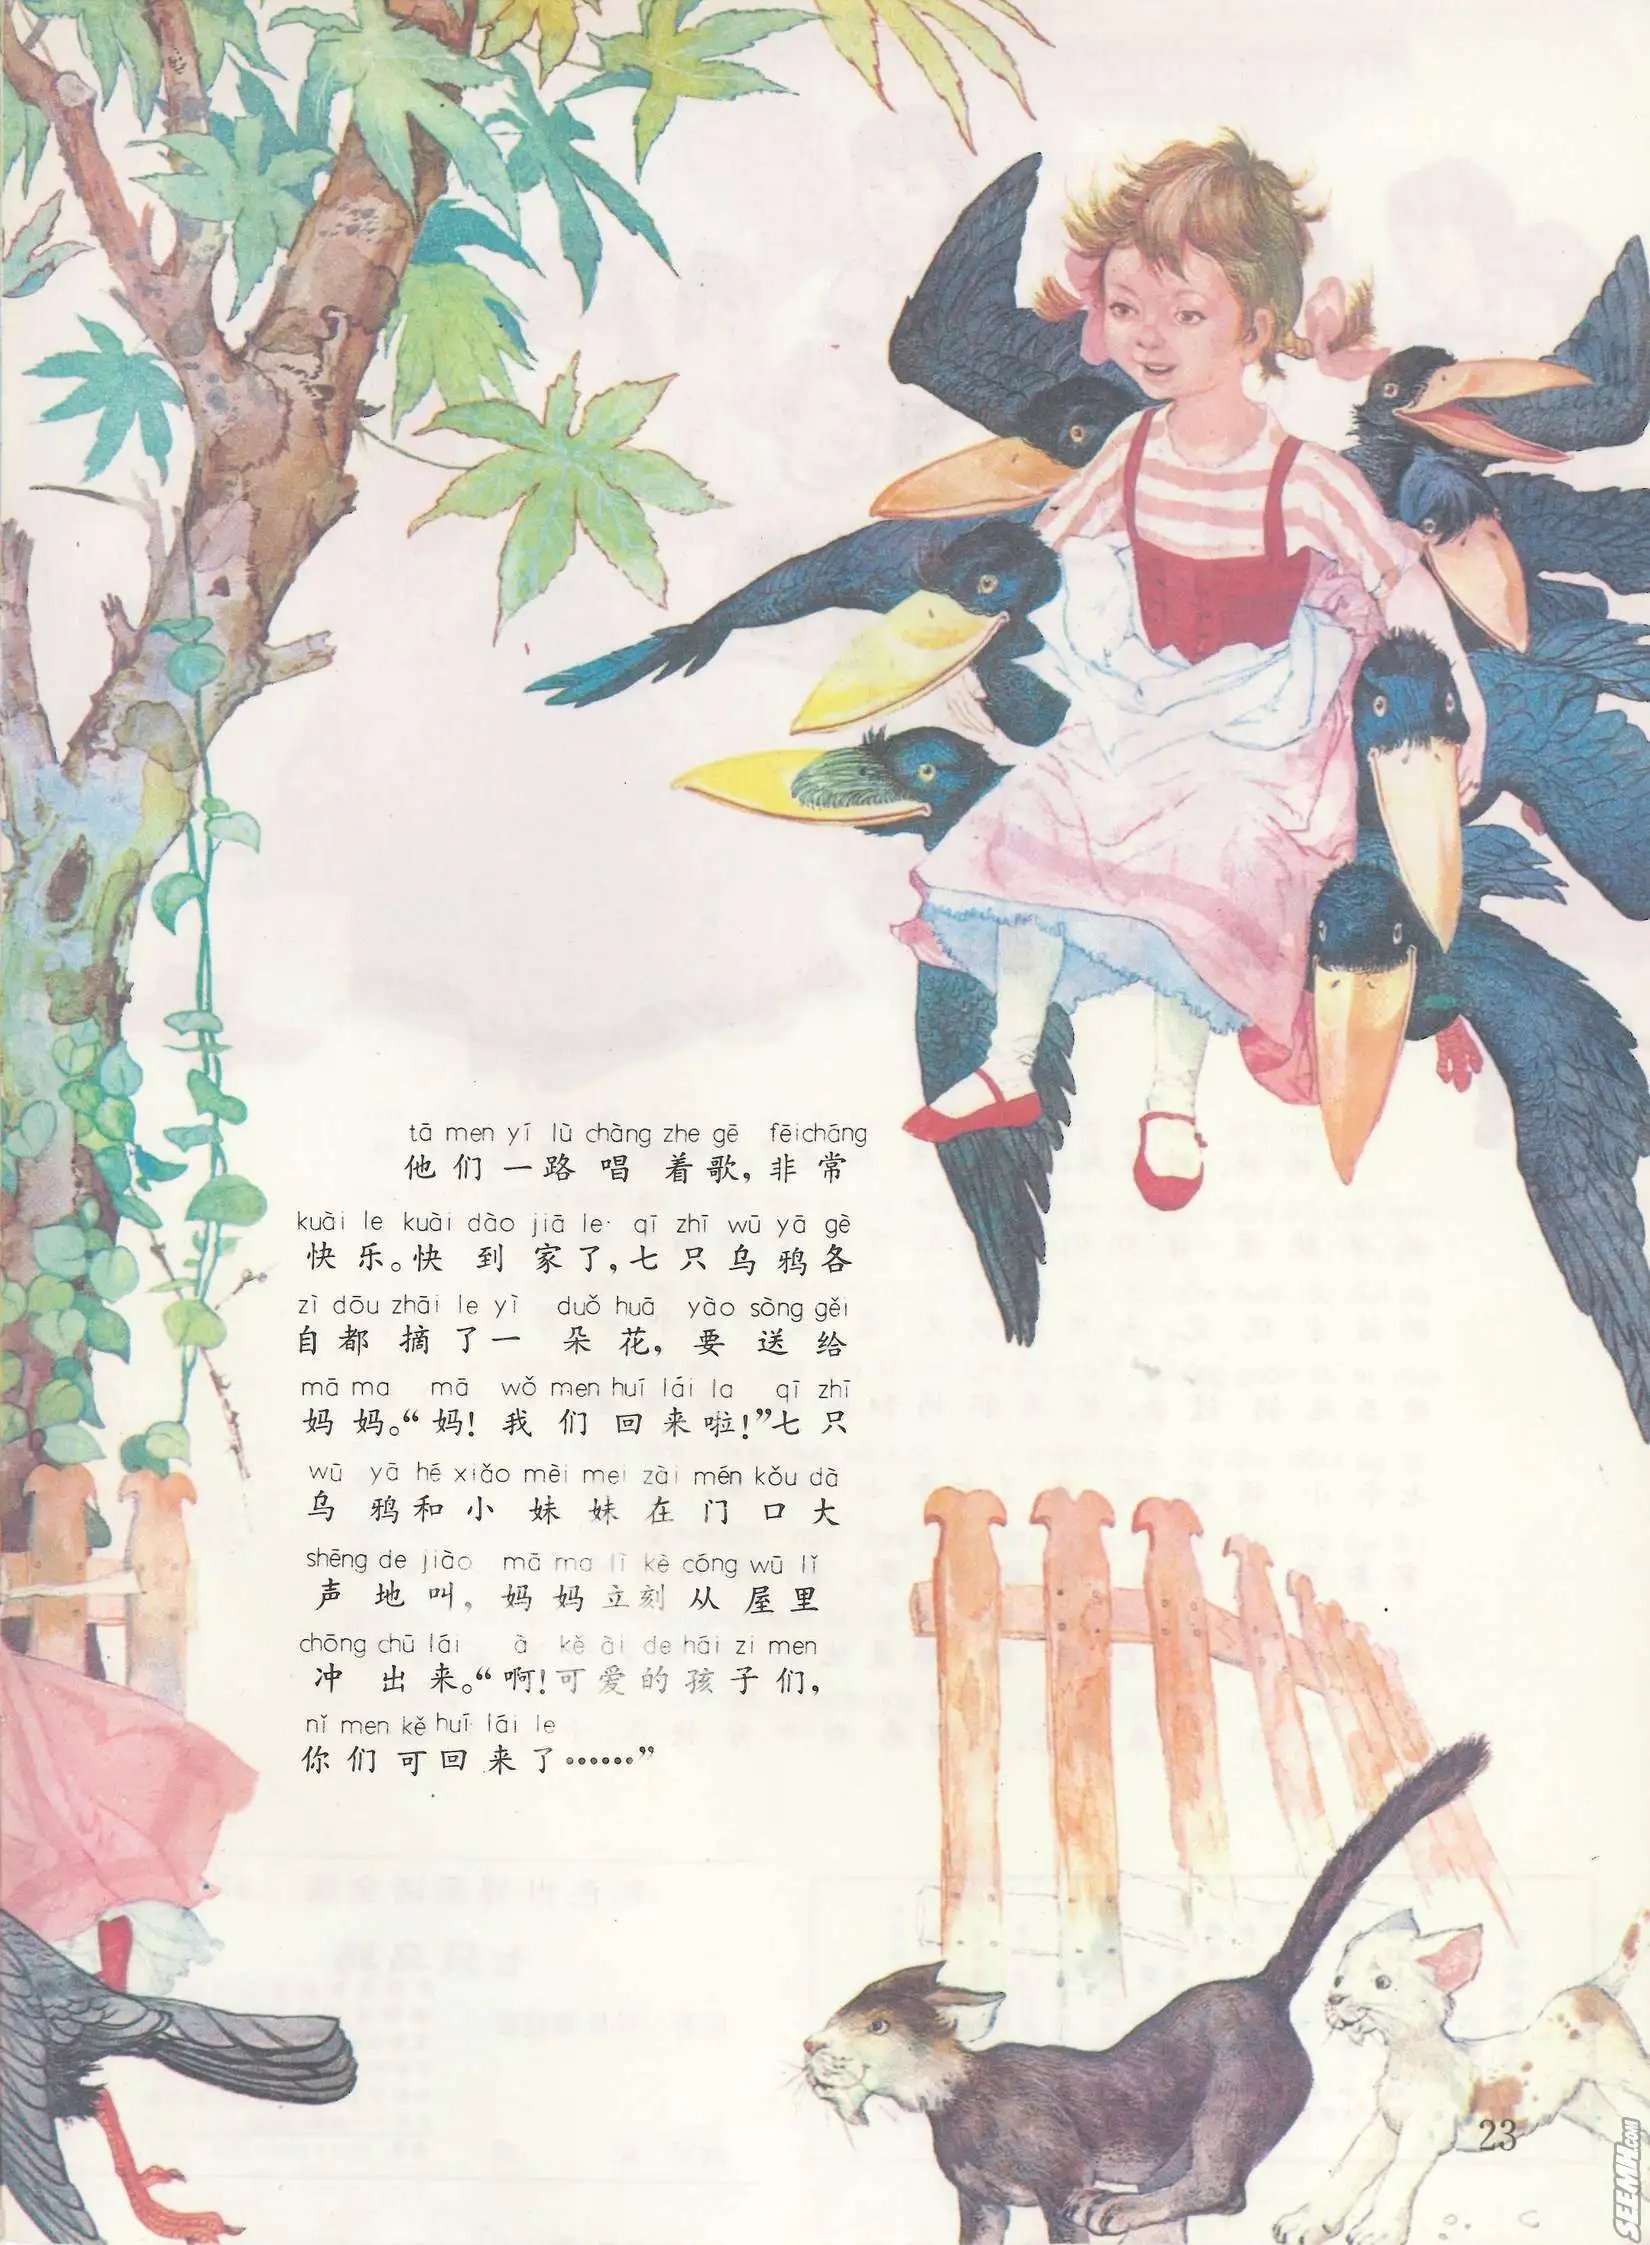 tā men yí lù chàng zhe gē fēicháng
他们一路唱着歌，非常
kuài le kuài dào jiā le qī zhī wū yā gè
快乐。快到家了，七只乌鸦各
zì dōu zhāi le yì duǒ huā yào sòng gěi
自都摘了一朵花，要送给
mā ma mā wǒ men huí lái la qī zhī
妈妈。“妈！我们回来啦！”七只
wū yā hé xiǎo mèi mei zài mén kǒu dà
乌鸦和小妹妹在门口大
shēng de jiào mā ma lì kè cóng wū lǐ
声地叫，妈妈立刻从屋里
chōng chū lái à kě ài de hái zi men
冲出来。“啊！可爱的孩子们，
nǐ men kě huí lái le
你们可回来了……”
23
SEEMH.COM